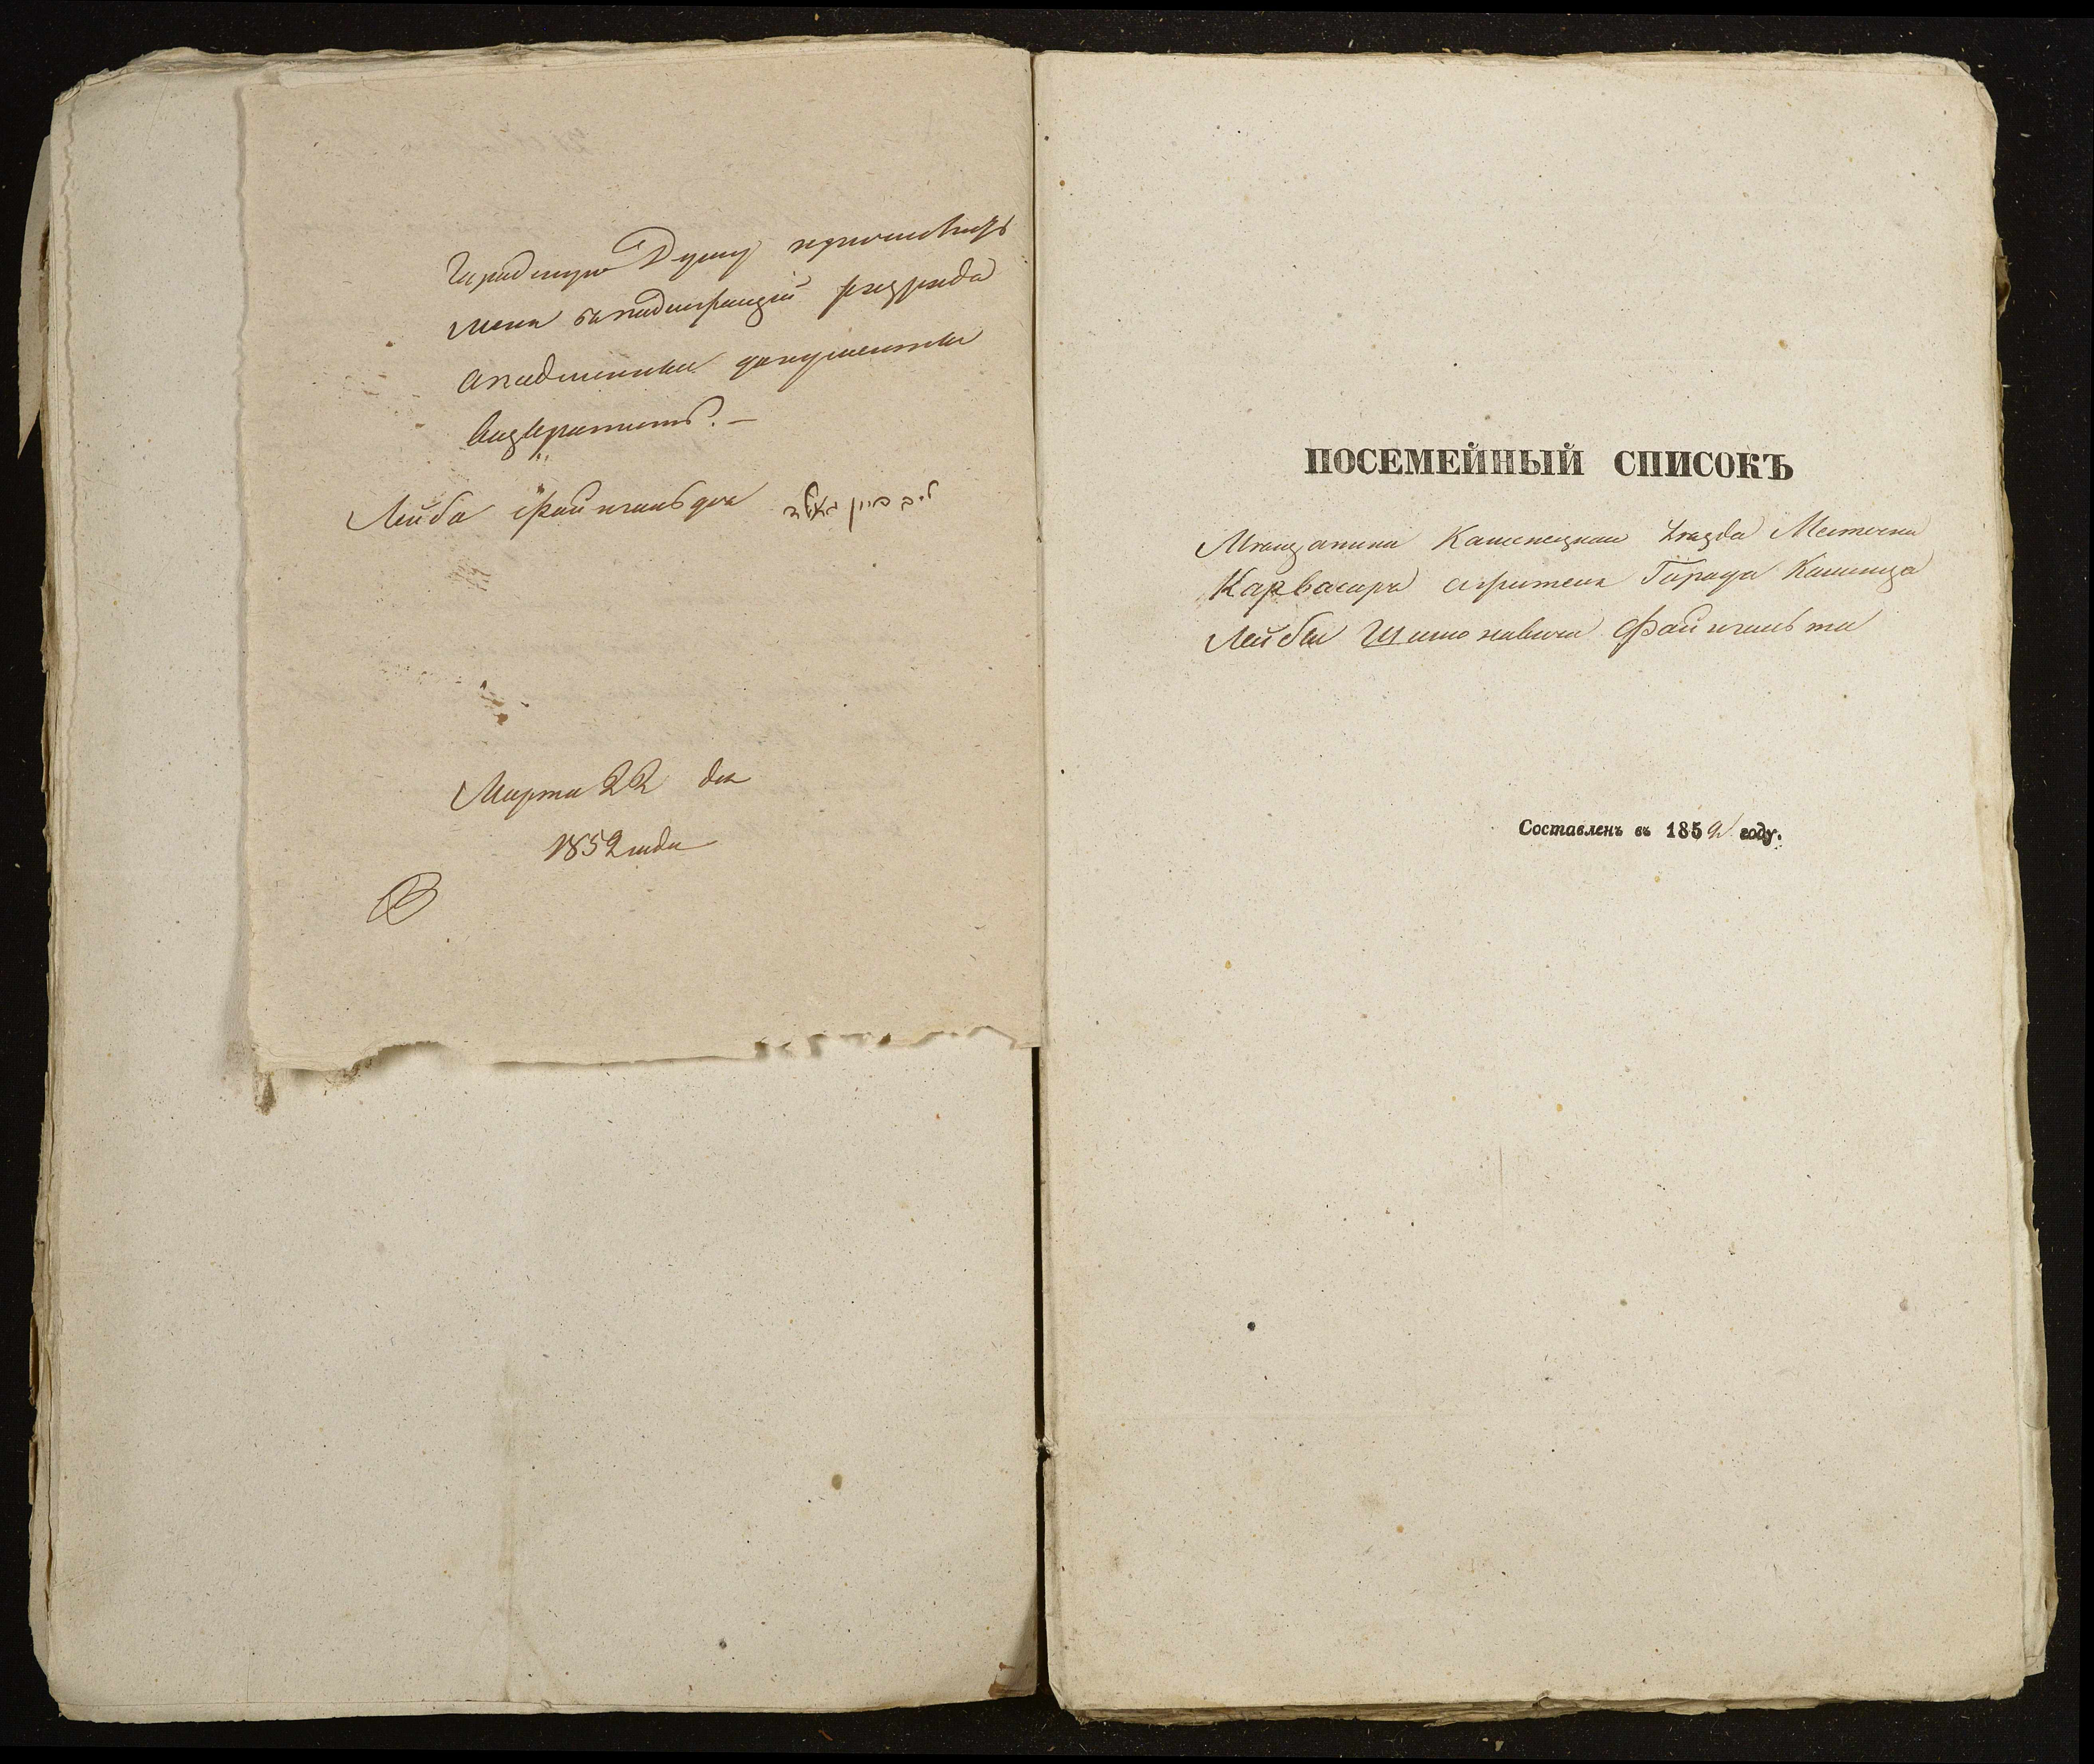 Городскую Думу причислить
меня в подлежащій разрядъ
а подлинники документы
возвратить. —
Лейба Файнгольдъ ליב פיין גאלד
Марта 22 дня
1852 года
ПОСЕМЕЙНЫЙ СПИСОКЪ
Мѣщанина Каменецкаго Уѣзда Местечка
Карвасаръ жителя Города Каменца
Лейбы Шимоновича Файнгольта
Составленъ въ 1852 году.